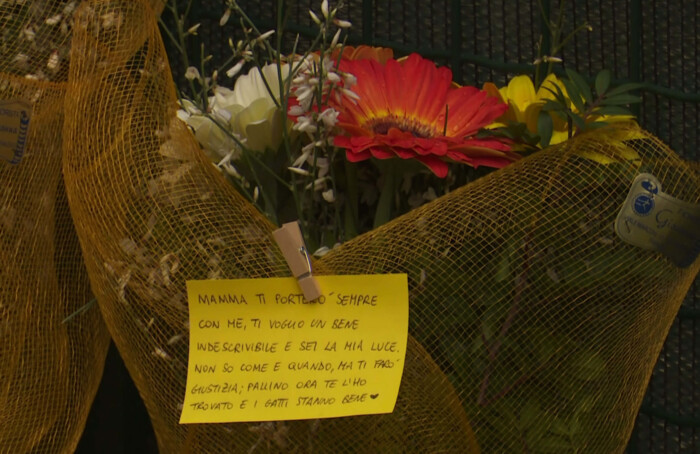 MAMMA TI PORTERO' SEMPRE
CON ME, TI VOGLIO UN BENE
INDESCRIVIBILE E SEI LA MIA LUCE.
NON SO COME E QUANDO, MA TI FARO'
GIUSTIZIA; PALLINO ORA TE L'HO
TROVATO E I GATTI STANNO BENE ♥